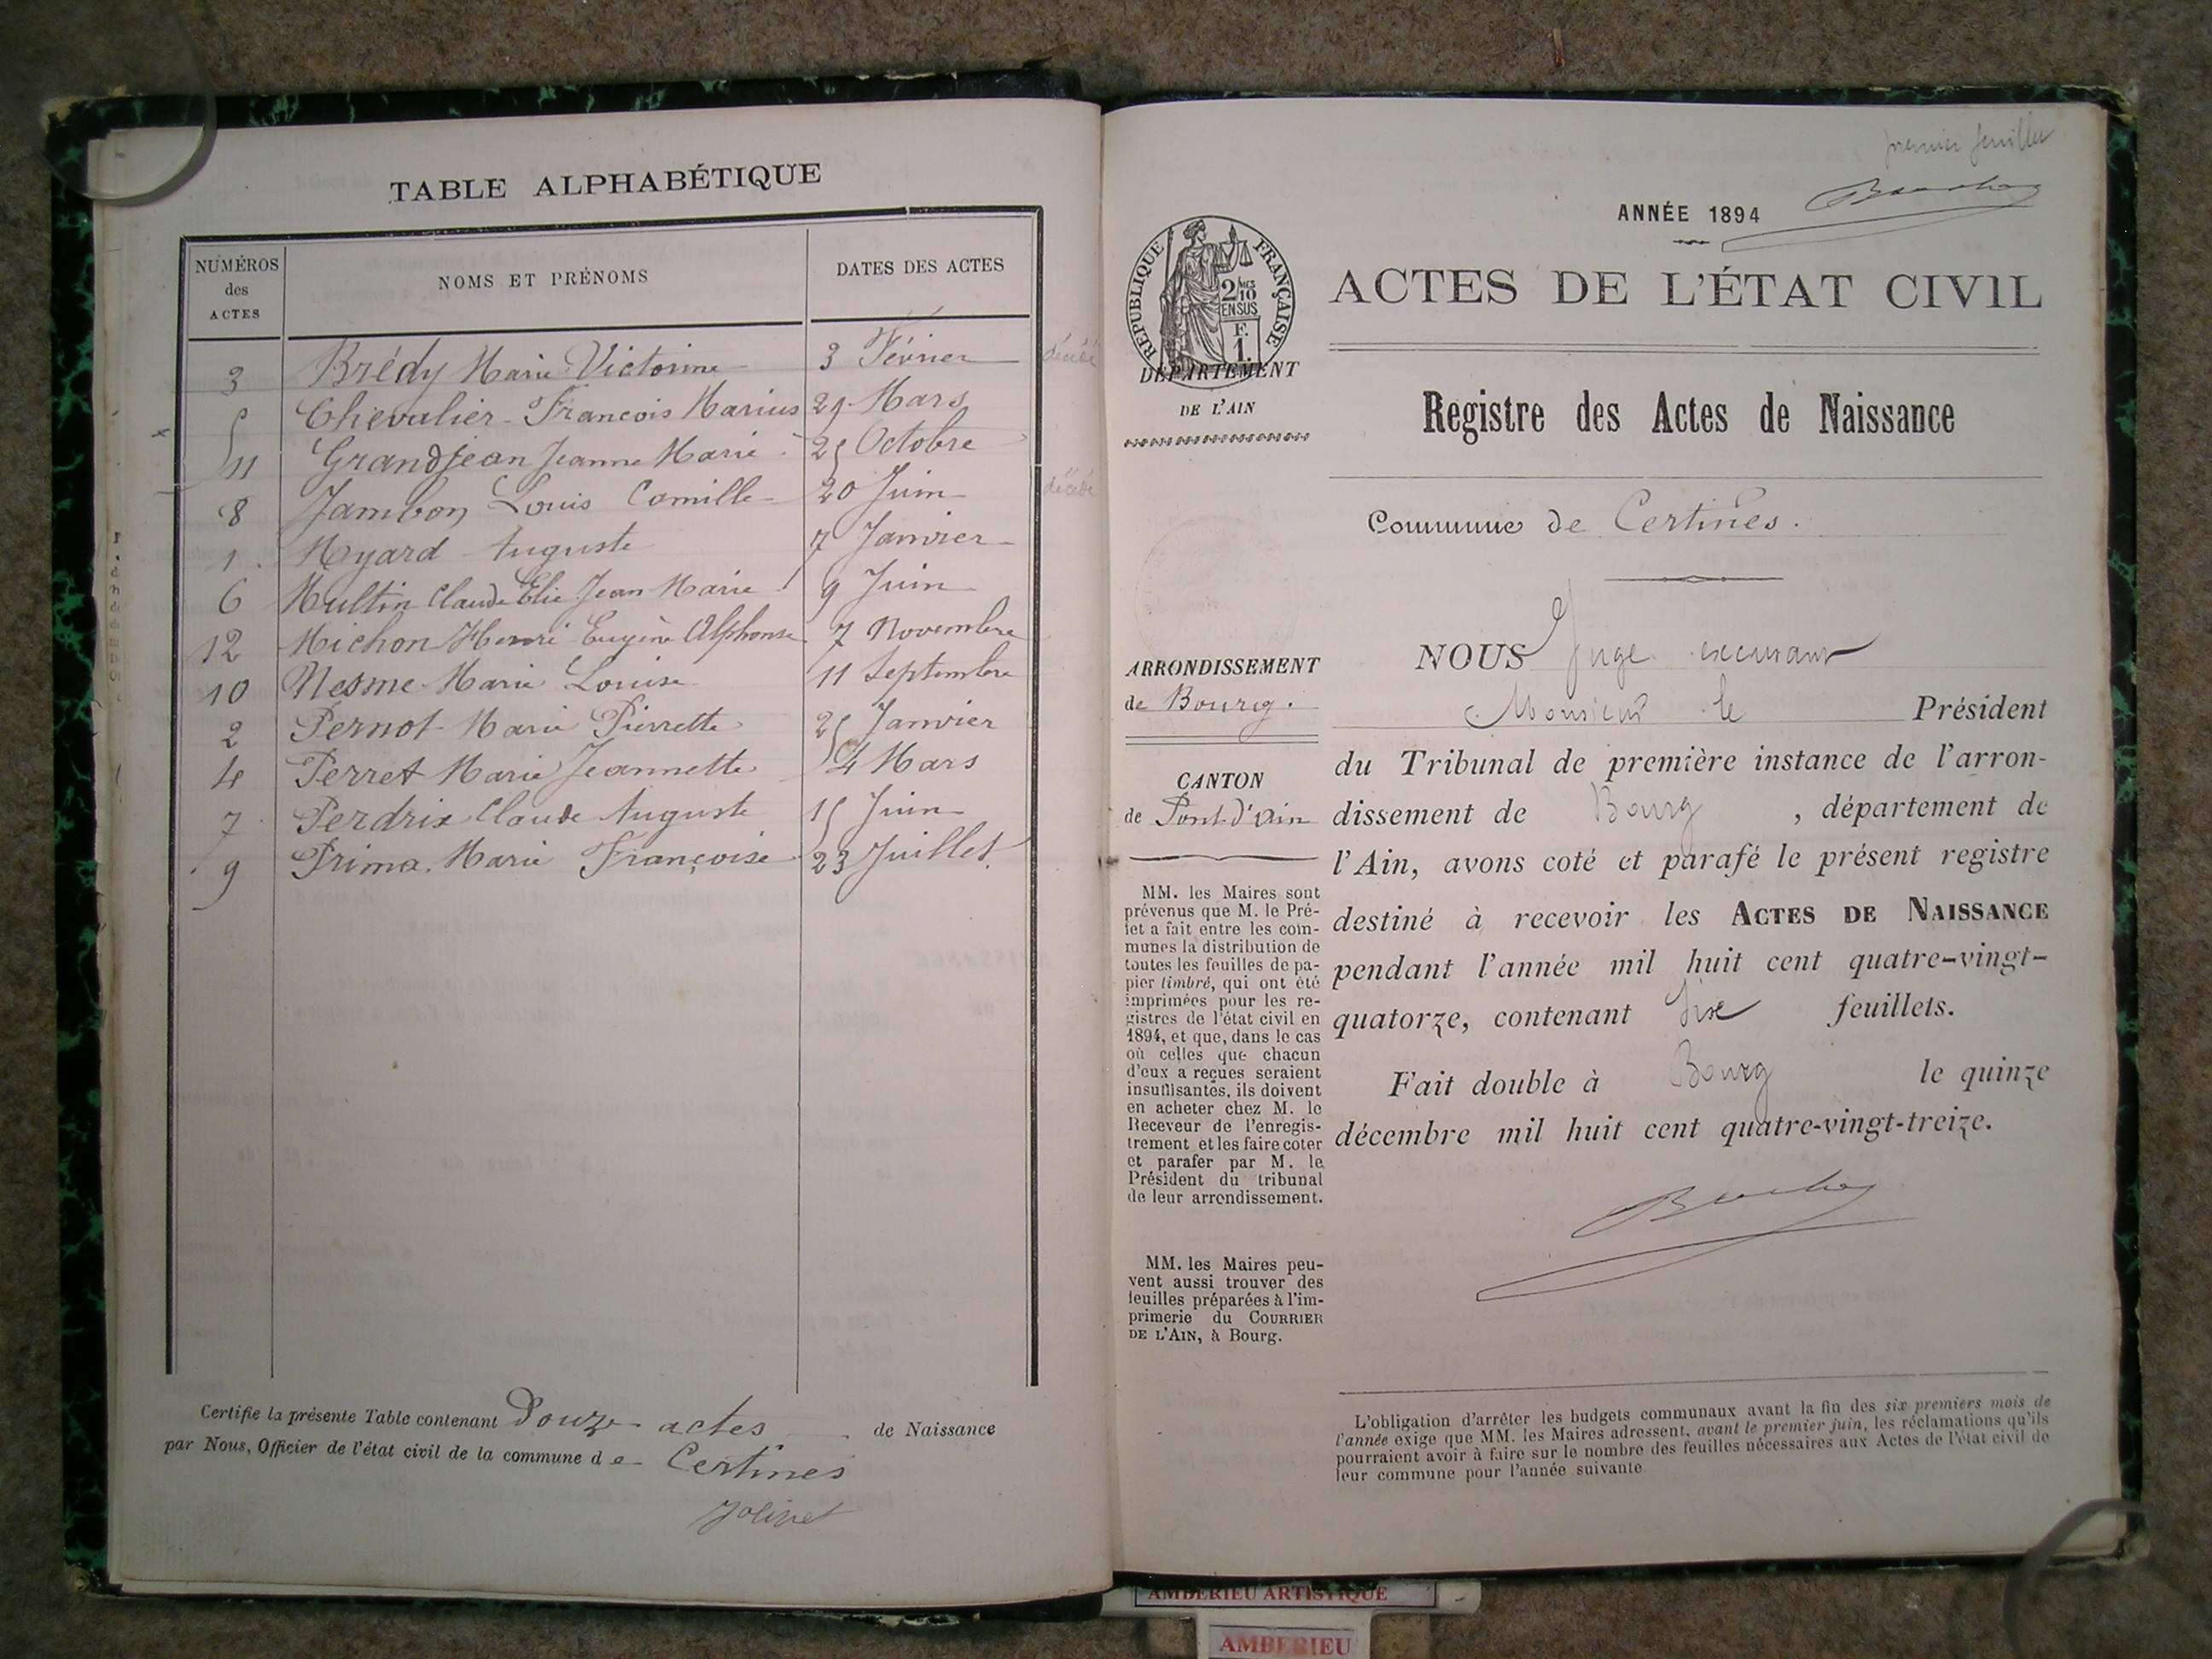 TABLE ALPHABÉTIQUE
NUMÉROS des ACTES NOMS ET PRÉNOMS DATES DES ACTES
3 Brédy Marie Victorine 3 Février décédé
5 Chevalier François Marius 29 Mars
11 Grandjean Jeanne Marie 25 Octobre
8 Jambon Louis Camille 20 Juin décédé
1 Moyard Auguste 7 Janvier
6 Multin Claude Elie Jean Marie 9 Juin
12 Michon Henri Eugène Alphonse 7 Novembre
10 Nesme Marie Louise 11 Septembre
2 Pernot Marie Pierrette 25 Janvier
4 Perret Marie Jeannette 4 Mars
7 Perdrix Claude Auguste 15 Juin
9 Prima Marie Françoise 23 Juillet.
Certifie la présente Table contenant Douze actes de Naissance
par Nous, Officier de l'état civil de la commune de Certines
premier feuillet
ANNÉE 1894
RÉPUBLIQUE FRANÇAISE
2/10 EN SUS
F.
1.
DÉPARTEMENT
DE L'AIN
ACTES DE L'ÉTAT CIVIL
Registre des Actes de Naissance
Commune de Certines.
ARRONDISSEMENT
de Bourg.
CANTON
de Pont-d'Ain
MM. les Maires sont
prévenus que M. le Pré-
fet a fait entre les com-
munes la distribution de
toutes les feuilles de pa-
pier timbré, qui ont été
imprimées pour les re-
gistres de l'état civil en
1894, et que, dans le cas
où celles que chacun
d'eux a reçues seraient
insuffisantes, ils doivent
en acheter chez M. le
Receveur de l'enregis-
trement et les faire coter
et parafer par M. le
Président du tribunal
de leur arrondissement.
MM. les Maires peu-
vent aussi trouver des
feuilles préparées à l'im-
primerie du COURRIER
DE L'AIN, à Bourg.
NOUS Juge
Monsieur le Président
du Tribunal de première instance de l'arron-
dissement de Bourg, département de
l'Ain, avons coté et parafé le présent registre
destiné à recevoir les ACTES DE NAISSANCE
pendant l'année mil huit cent quatre-vingt-
quatorze, contenant Six feuillets.
Fait double à Bourg le quinze
décembre mil huit cent quatre-vingt-treize.
L'obligation d'arrêter les budgets communaux avant la fin des six premiers mois de
l'année exige que MM. les Maires adressent, avant le premier juin, les réclamations qu'ils
pourraient avoir à faire sur le nombre des feuilles nécessaires aux Actes de l'état civil de
leur commune pour l'année suivante
AMBERIEU ARTISTIQUE
AMBERIEU